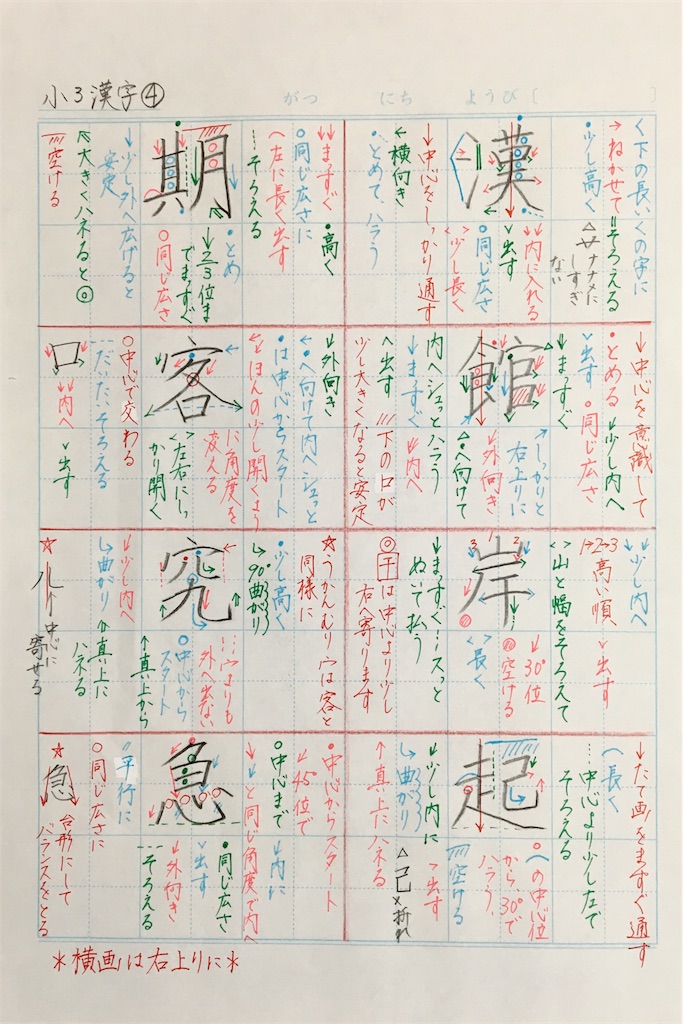 小3漢字④
がつ にち ようび〔 〕
く下の長いくの字に
→ねかせて =そろえる
・少し高く
△サ ナナメにしすぎない
漢
↓↓内に入れる
○同じ広さ
<>少し長く
∨出す
↓中心をしっかり通す
←横向き
・とめて、ハラう
期
↓↓まっすぐ ・高く
○同じ広さに
へ左に長く出す
…そろえる
・とめ
↓2/3位まで まっすぐ
○同じ広さ
↓少し外へ広げると安定
↖大きくハネると◎
//// 空ける
↓中心を意識して
・とめる ↓少し内へ
∨出す ○同じ広さ
↓↓まっすぐ
館
↗しっかりと右上りに
↙外向き
△●へ向けて
内へシュッとハラう
↓まっすぐ ↓内へ
へ出す //// 下の口が少し大きくなると安定
客
↓外向き
←●へ向けて内へシュッと
・は中心からスタート
↙↙ほんの少し開くように角度を変える
<>左右にしっかり開く
○中心で交わる
---だいたいそろえる
口
↓↓内へ ∨出す
↓↓少し内へ
1→2→3 高い順 ∨出す
<>山と幅をそろえて
岸
3 1 2
↓30°位
空ける
<>長く
↓まっすぐ…スっとぬいて払う
◎干は中心より少し右へ寄ります
究
☆うかんむり 穴は客と同様に
・少し高く
↳90°曲がり
…穴よりも外へ出ない
○中心からスタート
↑真上から
↓少し内へ
↳曲がり ⇑真上にハネる
☆儿←中心に寄せる
↓たて画をまっすぐ通す
⌒長く
…中心より少し左でそろえる
起
○への中心位から30°でハラう、
//// 空ける
↓少し内に →出す
↳曲がり △己×折れ
↑真上にハネる
急
・中心からスタート
↓45°位で ↓内に
○中心まで
↓↓と同じ角度で内へ
●同じ広さ
↓外向き
∨出す
---そろえる
〃平行に
○同じ広さに
☆急 台形にしてバランスをとる
＊横画は右上りに＊